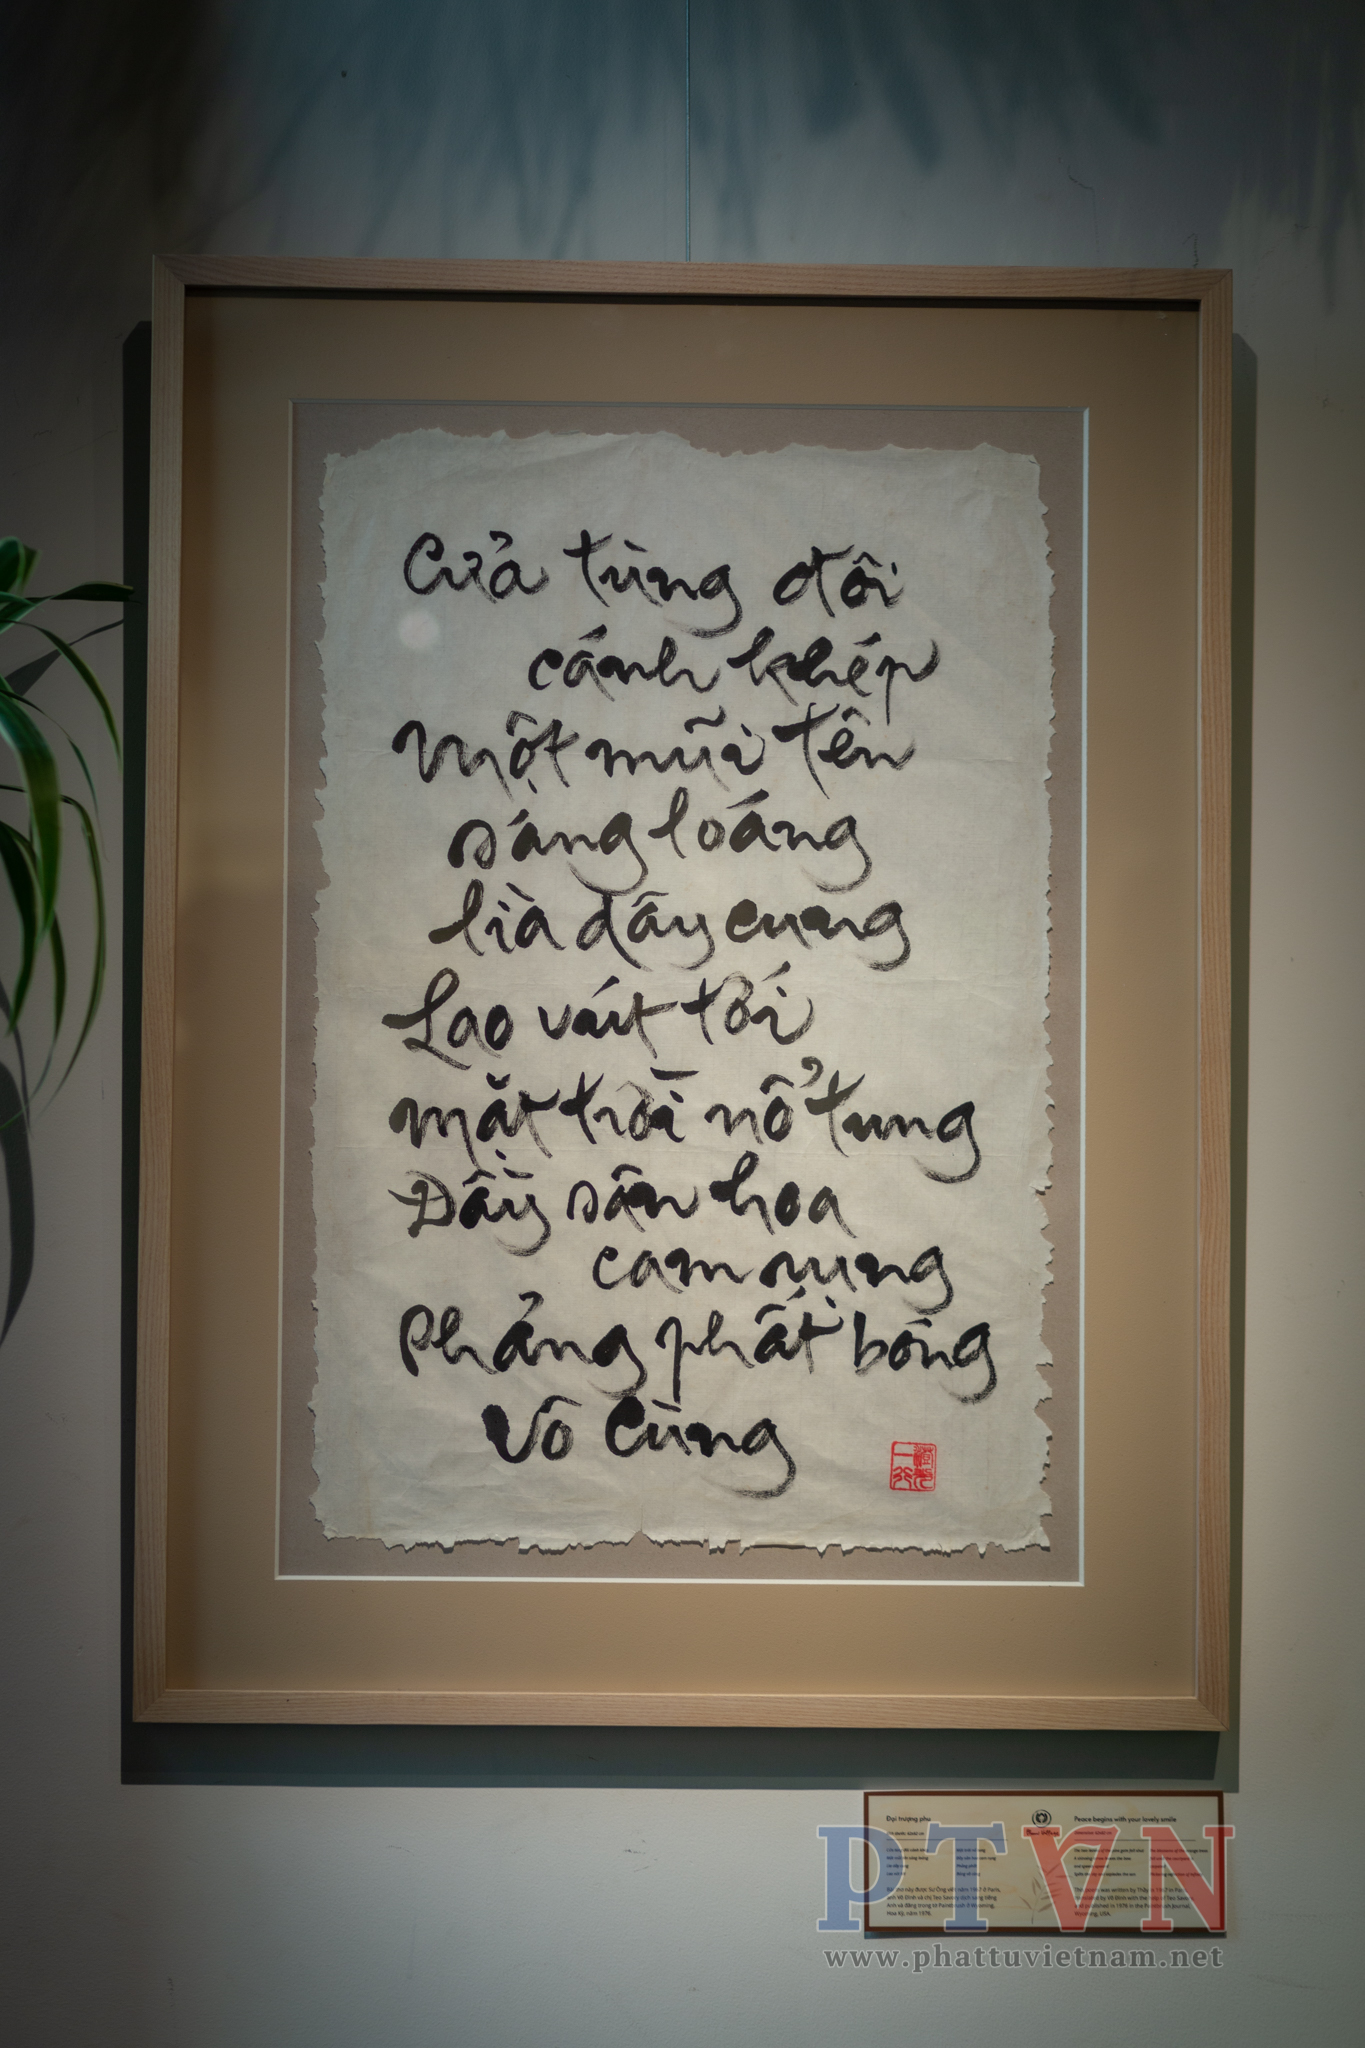 Cửa từng đôi
cánh khép
Một mũi tên
sáng loáng
lìa dây cung
Lao vút tới
mặt trời nổ tung
Đầy sân hoa
cam rụng
Phảng phất bóng
Vô Cùng
Đại trượng phu
Peace begins with your lovely smile
PTVN
www.phattuvietnam.net